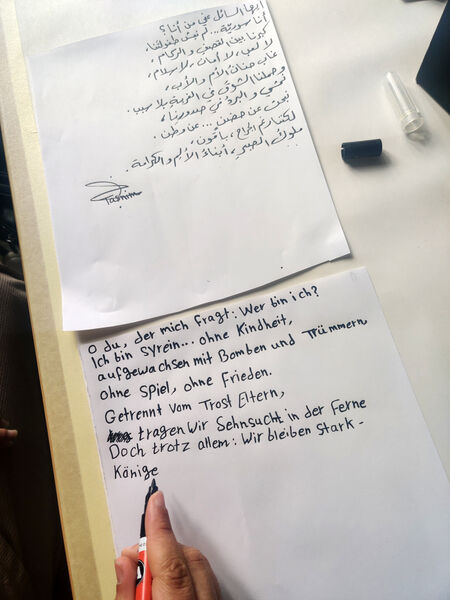 أيها السائل عني من أنا؟
أنا سورية... لم نعش طفولتنا،
كبرنا بين القصف و الركام،
لا لعب، لا أمان، لا سلام،
غاب حنان الأم والأب،
وحملنا الشوق في الغربة بلا سبب.
نمشي و البرد في صدورنا،
نبحث عن حضن... عن وطن،
لكننا رغم الجراح، باقون،
ملوك الصبر، أبناء الألم والكرامة.
Tasnim
O du, der mich fragt: Wer bin ich?
Ich bin Syrein... ohne Kindheit,
aufgewachsen mit Bomben und Trümmern
ohne Spiel, ohne Frieden.
Getrennt vom Trost Eltern,
tragen Wir Sehnsucht in der Ferne
Doch trotz allem: Wir bleiben stark -
Könige